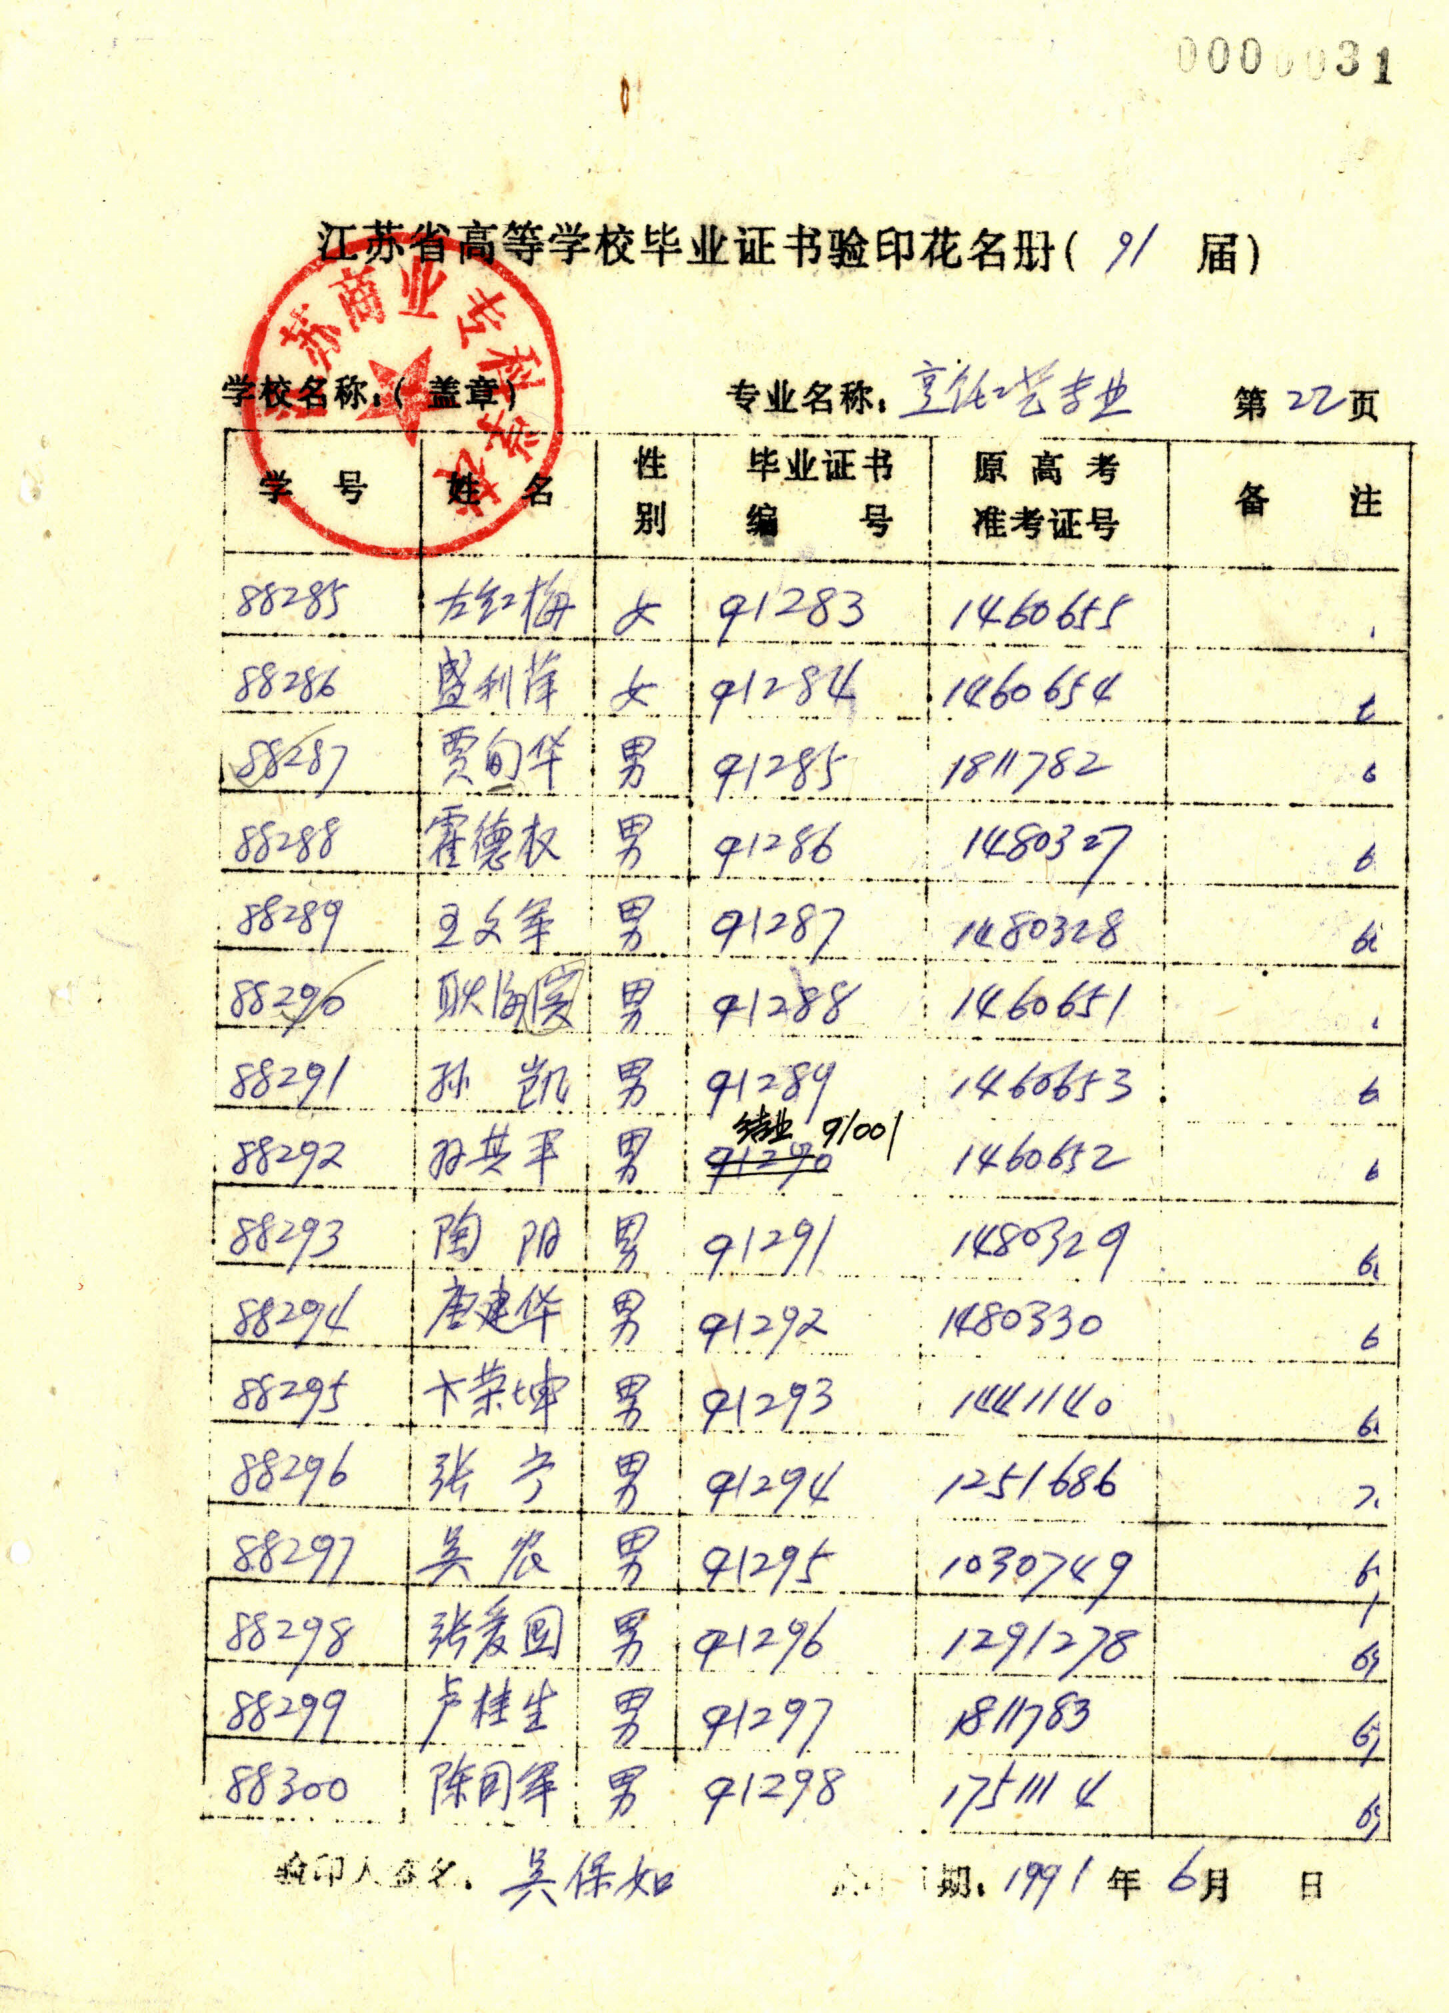 0000031
江苏省高等学校毕业证书验印花名册(91 届)
苏商业专科学校
学校名称:(盖章) 专业名称: 烹饪工艺专业 第22页
学号 姓名 性别 毕业证书编号 原高考准考证号 备注
88285 左红梅 女 91283 1460655
88286 盛利萍 女 91284 1460654
88287 贾旬华 男 91285 1811782
88288 霍德权 男 91286 1480327
88289 王文军 男 91287 1480328
88290 耿海 男 91288 1460651
88291 孙凯 男 91289 1460653
结业 91001
88292 孙共平 男 91290 1460652
88293 陶阳 男 91291 1480329
88294 唐建华 男 91292 1480330
88295 卞荣坤 男 91293 1441140
88296 张宁 男 91294 1251686
88297 吴农 男 91295 1030749
88298 张爱国 男 91296 1291278
88299 卢桂生 男 91297 1811783
88300 陈同军 男 91298 1751114
验印人签名: 吴保如 期: 1991年6月 日